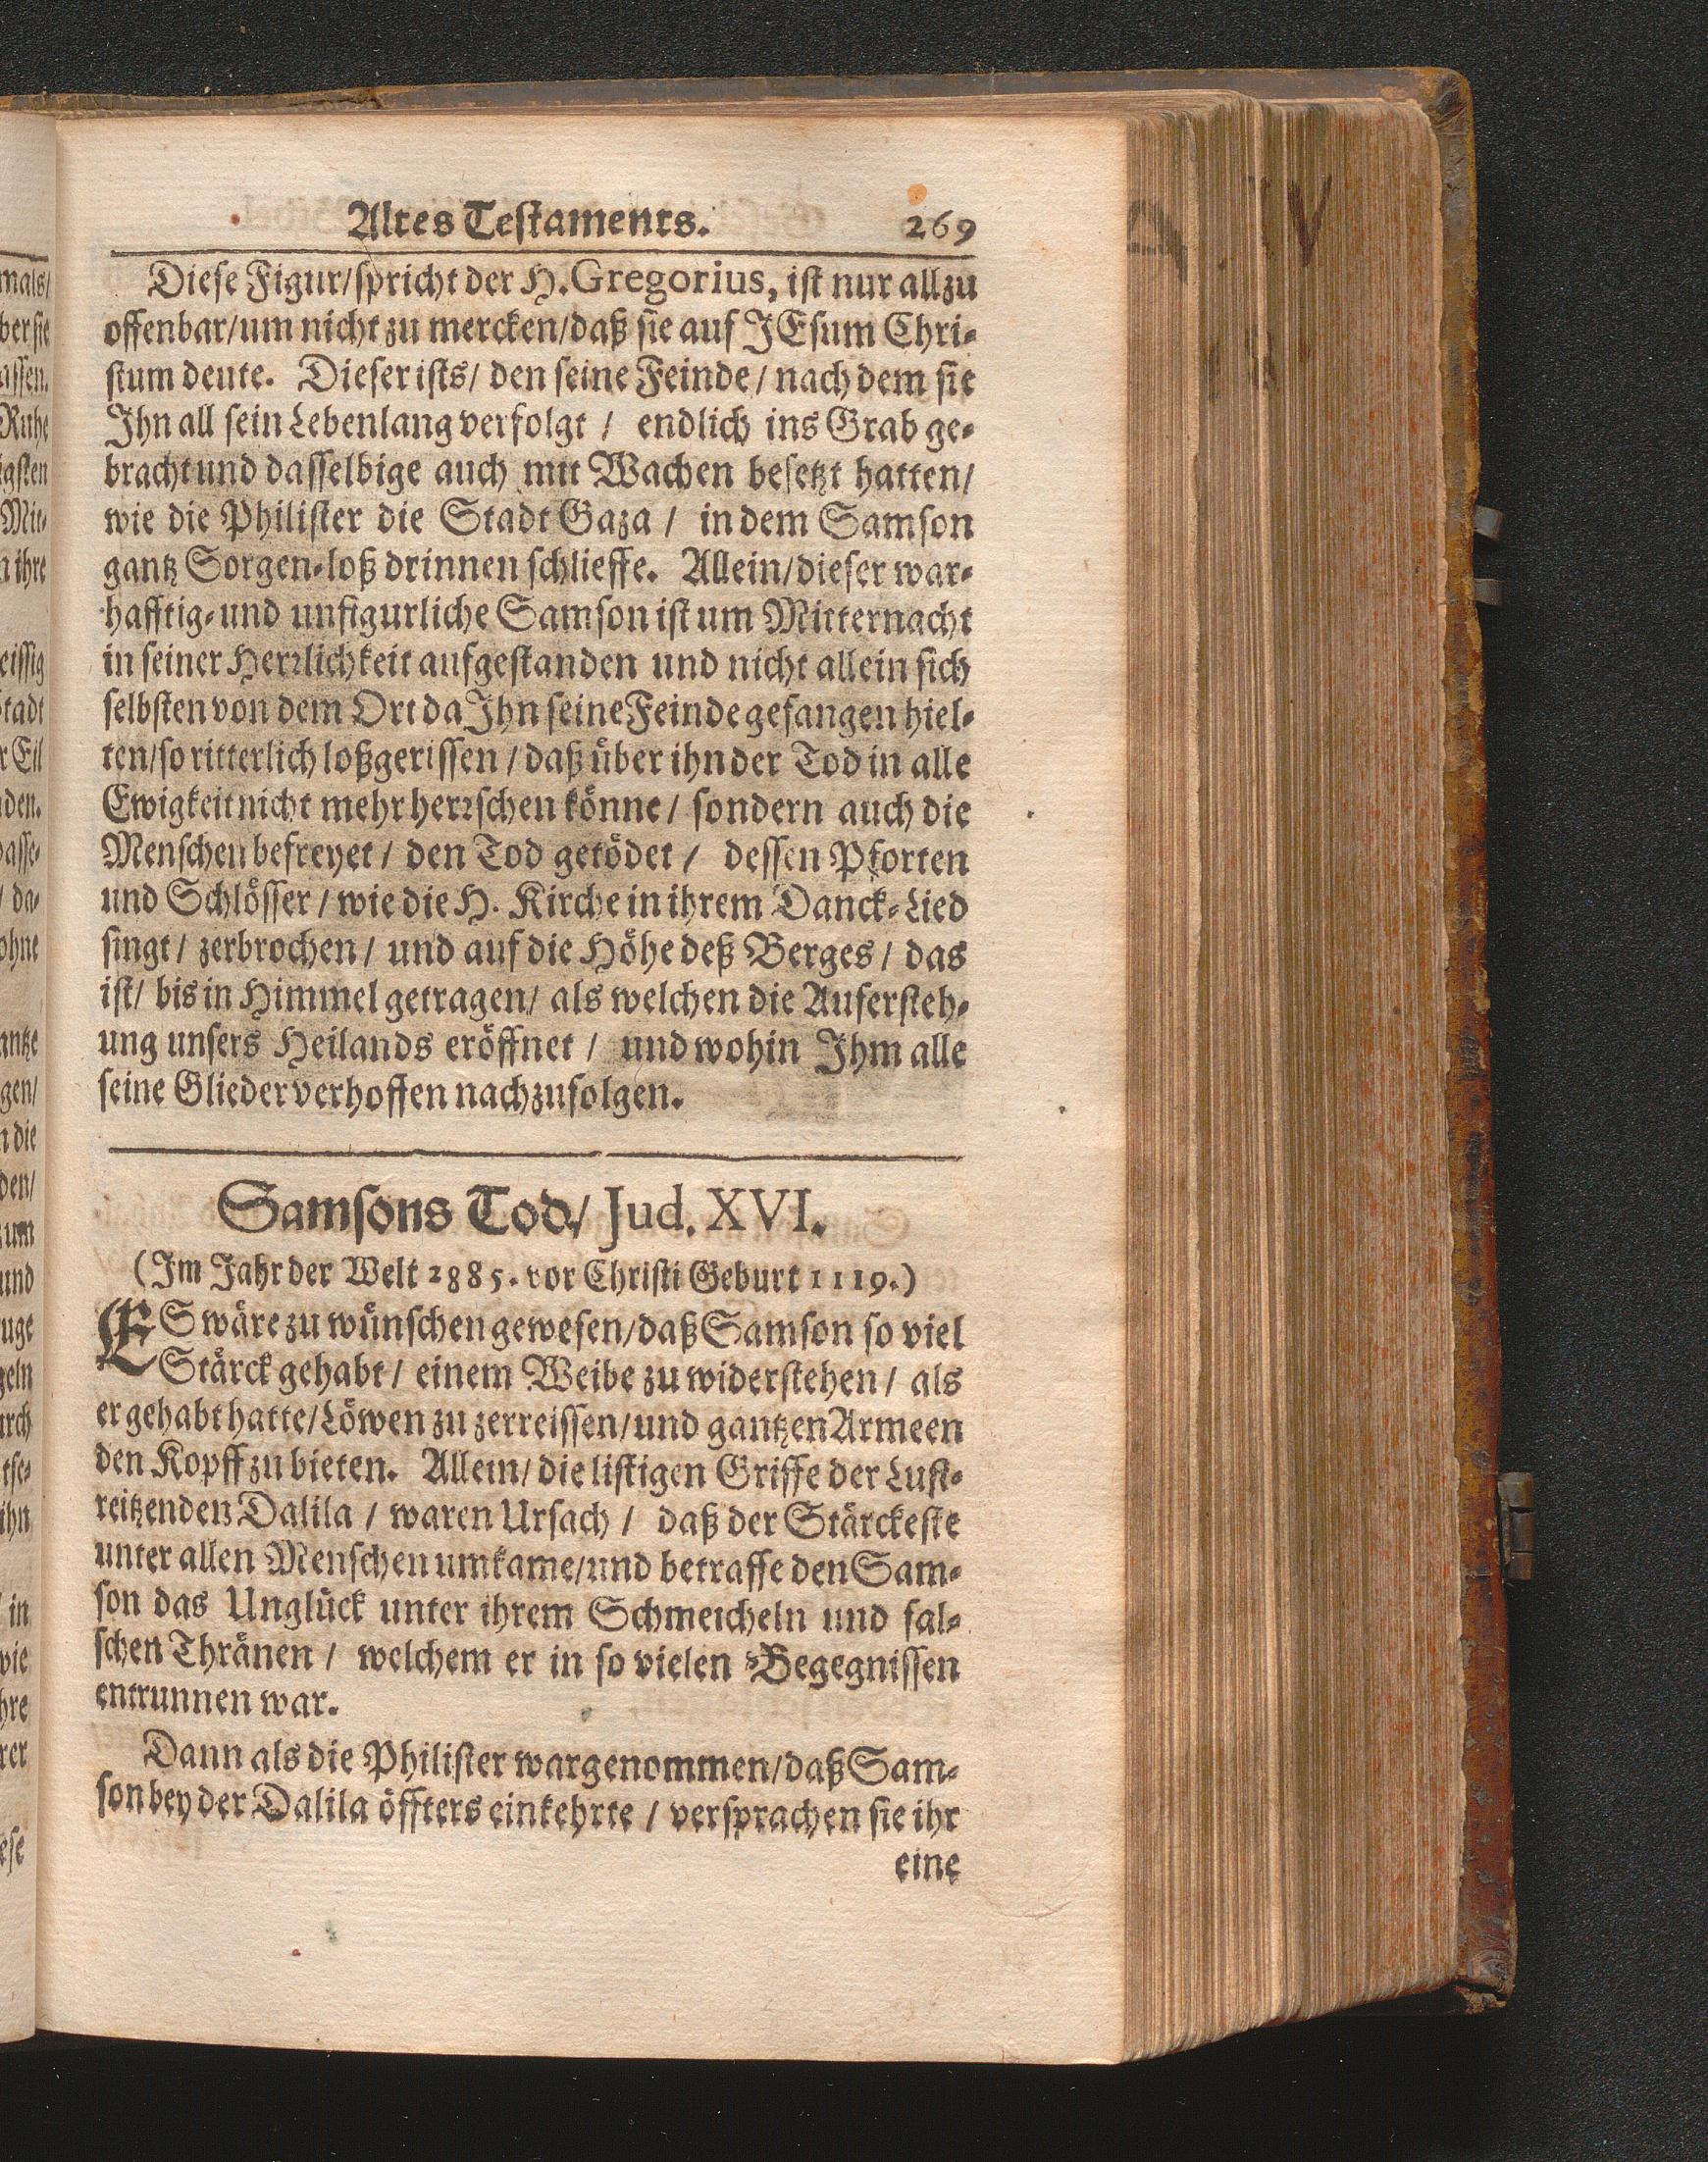 Altes Testaments. 269
Diese Figur/spricht der H. Gregorius, ist nur allzu
offenbar/um nicht zu mercken/daß sie auf JEsum Chri-
stum deute. Dieser ists/ den seine Feinde/ nach dem sie
Ihn all sein Lebenlang verfolgt / endlich ins Grab ge-
bracht und dasselbige auch mit Wachen besetzt hatten/
wie die Philister die Stadt Gaza / in dem Samson
gantz Sorgen-loß drinnen schlieffe. Allein/dieser war-
hafftig-und unfigurliche Samson ist um Mitternacht
in seiner Herrlichkeit aufgestanden und nicht allein sich
selbsten von dem Ort da Ihn seine Feinde gefangen hiel-
ten/so ritterlich loßgerissen / daß über ihn der Tod in alle
Ewigkeit nicht mehr herrschen könne / sondern auch die
Menschen befreyet / den Tod getödet / dessen Pforten
und Schlösser / wie die H. Kirche in ihrem Danck-Lied
singt / zerbrochen / und auf die Höhe deß Berges / das
ist/ bis in Himmel getragen/ als welchen die Aufersteh-
ung unsers Heilands eröffnet / und wohin Ihm alle
seine Glieder verhoffen nachzufolgen.
Samsons Tod/ Jud. XVI.
(Im Jahr der Welt 2885. vor Christi Geburt 1119.)
ES wäre zu wünschen gewesen/daß Samson so viel
Stärck gehabt / einem Weibe zu widerstehen / als
er gehabt hatte/Löwen zu zerreissen/und gantzen Armeen
den Kopff zu bieten. Allein/ die listigen Griffe der Lust-
reitzenden Dalila / waren Ursach / daß der Stärckeste
unter allen Menschen umkame/und betraffe den Sam-
son das Unglück unter ihrem Schmeicheln und fal-
schen Thränen / welchem er in so vielen Begegnissen
entrunnen war.
Dann als die Philister wargenommen/daß Sam-
son bey der Dalila öffters einkehrte / versprachen sie ihr
eine